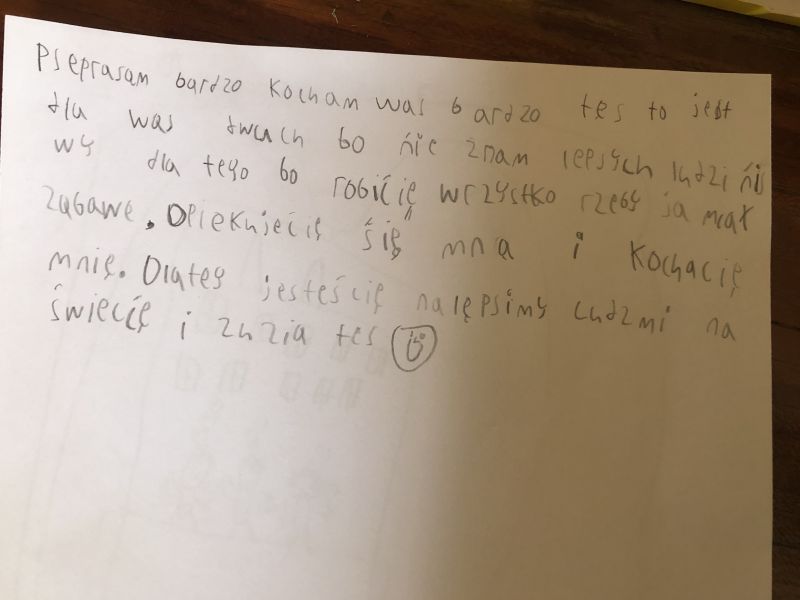 Pseprasam bardzo kocham was bardzo tes to jest
dla was dwuch bo ńie znam lepsych ludzi ńiś
wy dla tego bo robićię wrzystko rzeby ja mcał
zabawe. Opiekujećię śię mna i kochacię
mnię. Dlateg jesteścię nalępsimy ludzmi na
świecię i zuzia tes